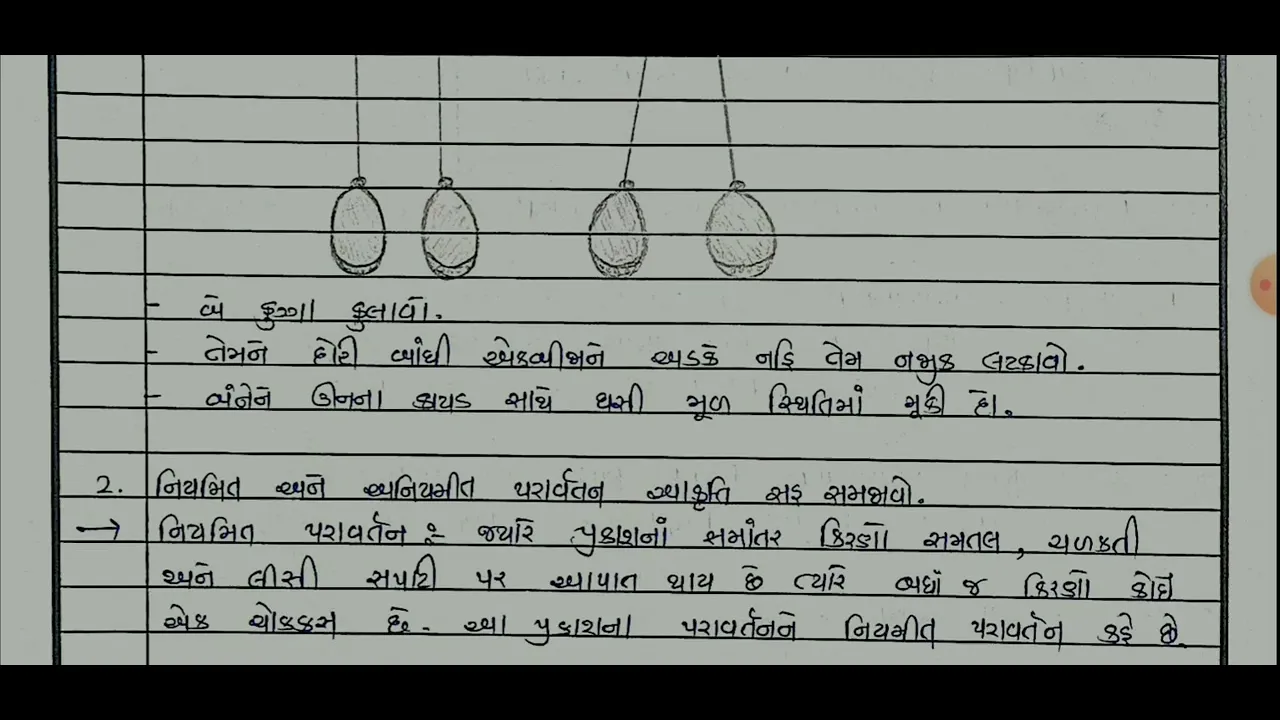 - બે ફુગ્ગા ફુલાવો.
- તેમને દોરી બાંધી એકબીજાને અડકે નહિ તેમ નજીક લટકાવો.
- બંનેને ઊનના કાપડ સાથે ઘસી મૂળ સ્થિતિમાં મૂકી દો.
2. નિયમિત અને અનિયમીત પરાર્વતન આકૃતિ સહ સમજાવો.
→ નિયમિત પરાવર્તન :- જ્યારે પ્રકાશનાં સમાંતર કિરણો સમતલ, ચળકતી
અને લીસી સપાટી પર આપાત થાય છે ત્યારે બધાં જ કિરણો કોઈ
એક ચોકકસ છે. આ પ્રકાશના પરાવર્તનને નિયમીત પરાવર્તન કહે છે.